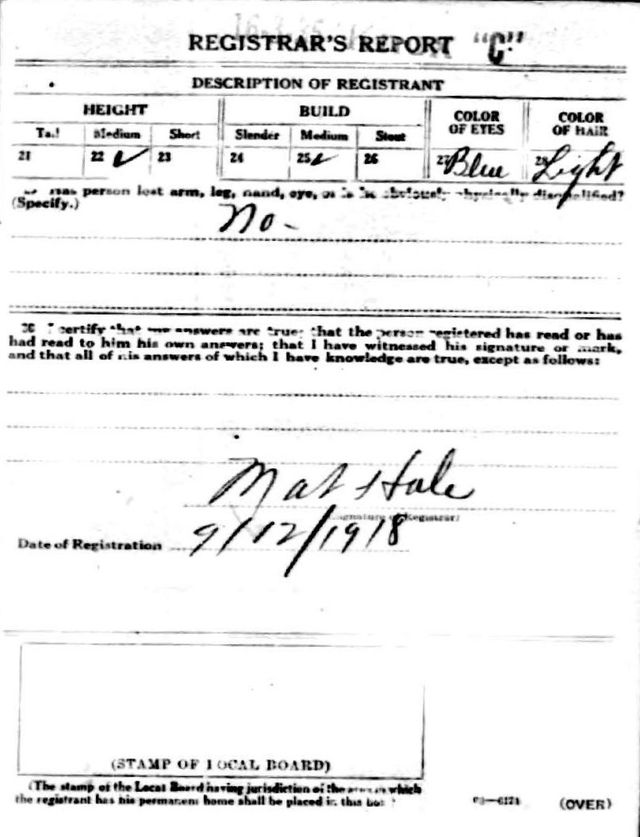 REGISTRAR'S REPORT "C"
DESCRIPTION OF REGISTRANT
HEIGHT BUILD COLOR OF EYES COLOR OF HAIR
Tall Medium Short Slender Medium Stout
21 22 ✓ 23 24 25 ✓ 26 27 Blue 28 Light
29 Has person lost arm, leg, hand, eye, or is he obviously physically disqualified?
(Specify.)
No -
30 I certify that my answers are true; that the person registered has read or has
had read to him his own answers; that I have witnessed his signature or mark,
and that all of his answers of which I have knowledge are true, except as follows:
Mat Hale
(Signature of Registrar)
Date of Registration 9/12/1918
(STAMP OF LOCAL BOARD)
(The stamp of the Local Board having jurisdiction of the area in which
the registrant has his permanent home shall be placed in this box.)
(OVER)